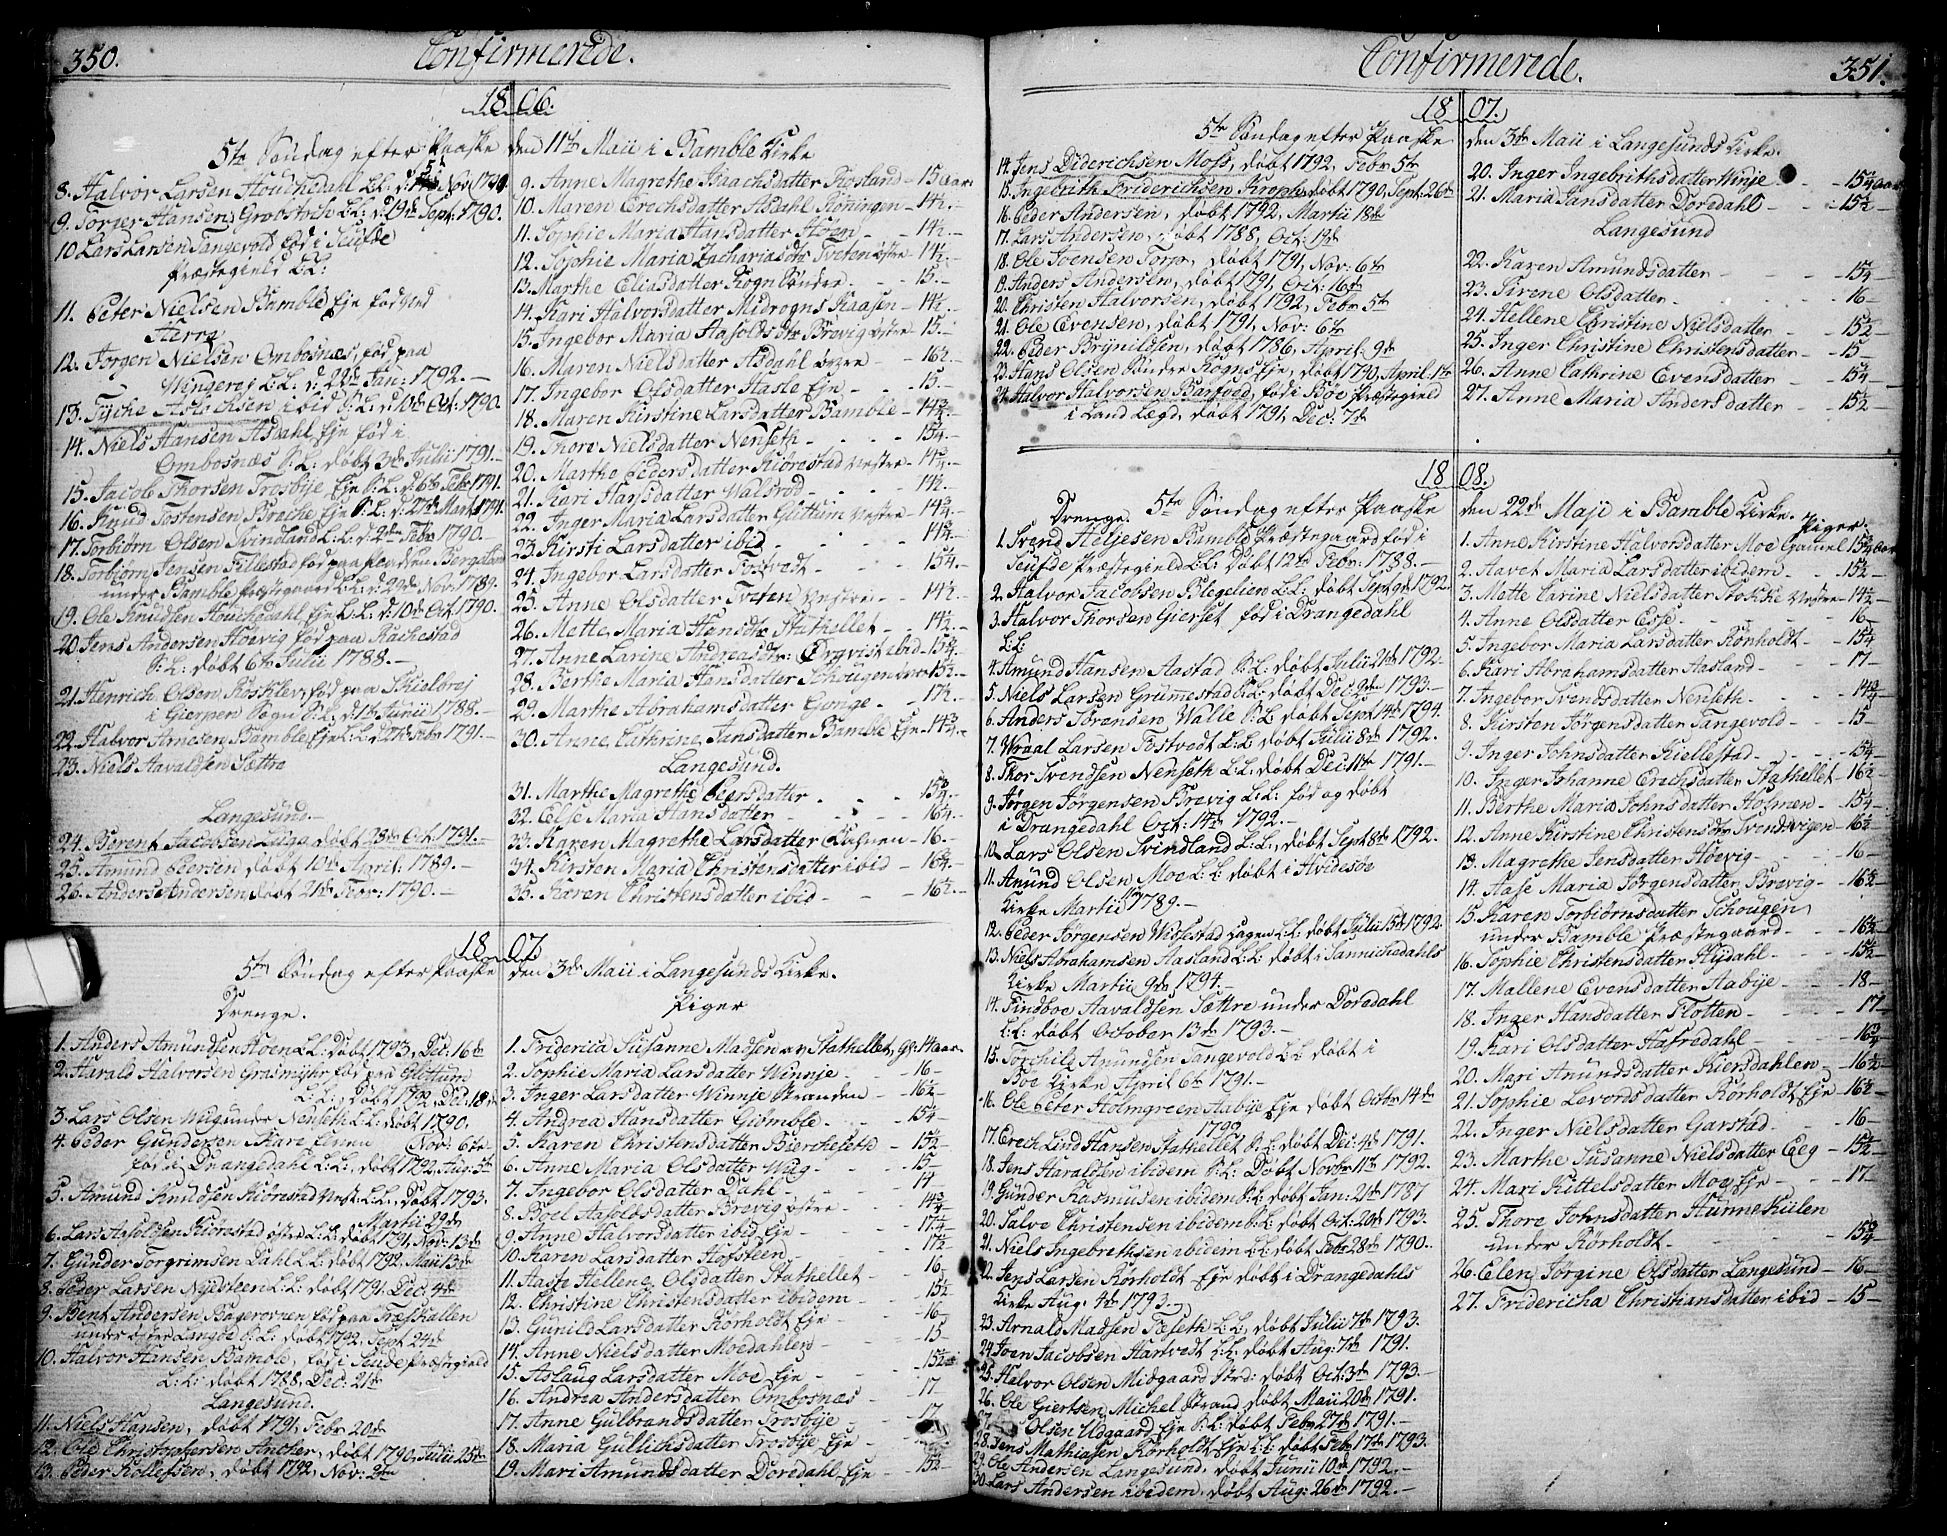 350.
Confirmerede.
1806.
5te Søndag efter Paaske den 11te Maii i Bamble Kirke
8. Halvor Larsen Houchedahl L:L: d. 5te Nov. 1790
9. Torger Hansen Grobstoch L:L: d. 19de Sept. 1790.
10 Lars Larsen Tangevold fød i Seufde
Præstegield L:L:
11. Peter Nielsen Bamble Eje fød ved
Herre
12. Jørgen Nielsen Ombosnæs, fød paa
L:L: d: 22de Jan: 1792.—
13. Tyche Aslachsen ibid S:L: d. 10de Oct: 1790.
14. Niels Hansen Asdahl Eje fød i
Ombosnæs S:L: døbt 3de Julii 1791.—
15. Jacob Thorsen Trosbye Eje S:L: d: 6te Febr 1791.
16. Knud Tostensen Brache Eje S:L: d: 27de Mart 1791.
17. Torbiørn Olsen Svindland L:L: d. 2den Febr 1790.—
18. Torbiørn Jensen Fillestad fød paa pladsen
under Bamble præstegaard L:L: d: 22de Nov: 1789.
19. Ole Knudsen Houchedahl Eje L:L: d: 10de Oct. 1790.
20 Jens Andersen Hoevig fød paa Rachestad
S:L: døbt 6te Julii 1788.—
21. Henrich Olsen Røsklev, fød paa
i Gierpen Sogn S:L: d. 1te Junii 1788.—
22. Halvor Arnesen Bamble Eje L:L: d. 27de Febr 1791.—
23. Niels Aavaldsen Sættre
Langesund.—
24. Berent Jacobsen døbt 28de Oct: 1791.—
25. Amund Peersen døbt 10de April: 1789.—
26. Anders Andersen, døbt 21de Febr: 1790.—
9. Anne Magrethe Isaachsdatter Rostand — 15 Aar
10. Maren Erechsdatter Asdahl Røningen — 14½.—
11. Sophie Maria Hansdatter Hoen — 14½.—
12. Sophie Maria Zachariasdtr Tveten østre — 14½.—
13. Marthe Eliasdatter Rogn Søndre — 15.—
14. Kari Halvorsdatter Midrogns Kaasen — 14½.—
15. Ingebor Maria Aasoldsdtr Brevig østre — 15.—
16. Maren Nielsdatter Asdahl øvre — 16½.
17. Ingebor Olsdatter Hasle Eje — 15.—
18. Maren Kirstine Larsdatter Bamble — 14¾.—
19. Thore Nielsdatter Nenseth — 15¼.—
20. Marthe Pedersdatter Kiørestad Vestre — 14¾.—
21. Kari Hansdatter Walsrød — 14½.—
22. Inger Maria Larsdatter Gluttum Vestre — 14¾.—
23. Kirsti Larsdatter ibid — 14¾.—
24. Ingebor Larsdatter Tostvedt — 15¼.—
25. Anne Olsdatter Tveten Vestre — 14½.—
26. Mette Maria Hansdtr Stathellet — 14½.—
27. Anne Larine Andreasdtr: Ørqvist ibid — 15¾.—
28. Berthe Maria Hansdatter Schougen øvre — 15½.—
29. Marthe Abrahamsdatter Gonge — 17½.—
30. Anne Cathrine Jansdatter Bamble Eje — 14¾.—
Langesund.
31. Marthe Magrethe Peersdatter — 15¾.—
32. Else Maria Hansdatter — 16¼.—
33. Karen Magrethe Larsdatter — 16.—
34. Kirsten Maria Christensdatter ibid — 16¼.—
35. Karen Christensdatter ibid — 16½.—
1807.
5te Søndag efter Paaske den 3de Maii i Langesunds Kirke.
Drenge.
1. Anders Amundsen Hoen L:L: døbt 1793, Dec: 16de
2. Harald Halvorsen Grasmyhr fød paa Gluttum
L:L:, døbt 1792, Dec: 18de
3. Lars Olsen Wig under Nenseth L:L: døbt 1790.
Nov: 6te
4. Peder Gundersen Skare
fød i Drangedahl L:L:, døbt 1792, Aug: 5te
5. Amund Knudsen Kiørestad Vest: L:L:, døbt 1793.
Martii 29de
6. Lars Aasoldsen Kiørestad øster L:L: døbt 1791, Nov: 13de
7. Gunder Torgrimsen Dahl L:L: døbt 1792 Maii 13de
8. Peder Larsen Nysteen L:L: døbt 1791, Dec: 4de
9. Bent Andersen Bagerovnen fød paa Træskallen
under øster Langøe S:L: døbt 1792, Sept: 24de
10. Halvor Hansen Bamble, fød i Seude præstegield
L:L: døbt 1788, Dec: 21de
Langesund.
11. Niels Hansen, døbt 1791, Febr 20de
12. Ole Christophersen Ancher, døbt 1790, Julii 25de
13. Peder Rollefsen, døbt 1792, Nov: 2den
Piger
1. Fridericia Susanne Madsen av Stathellet, gl: 14 Aar.
2. Sophie Maria Larsdatter Winnje — 16—
3. Inger Larsdatter Winnje Stranden — 16½—
4. Andrea Hansdatter Giømble — 15¼—
5. Karen Christensdatter Biercheseth — 15½—
6. Anne Maria Olsdatter Wiig — 15—
7. Ingebor Olsdatter Dahl — 14—
8. Boel Aasoldsdatter Brevig østre — 14¾—
9. Anne Halvorsdatter ibid Eje — 17¼—
10. Karen Larsdatter Hofsteen — 17½—
11. Haste Hellene Olsdatter Stathellet — 16—
12. Christine Christensdatter ibidem — 15½—
13. Gunild Larsdatter Rørholdt Eje — 16—
14. Anne Nielsdatter Moedahlen — 15—
15. Aslaug Larsdatter Moe Eje — 15½—
16. Andrea Andersdatter Ombosnæs — 17—
17. Anne Gulbrandsdatter Trosbye — 17
18. Maria Gullichsdatter Trosbye Eje
19. Mari Amundsdatter Doredahl Eje — 15½—
Confirmerede.
351.
1807.
5te Søndag efter Paaske den 3de Maii i Langesunds Kirke.
14. Jens Diderichsen Moss, døbt 1792, Febr 5te
15. Ingebrith Friderichsen Kroph, døbt 1790, Sept: 26de
16. Peder Andersen, døbt 1792, Martii 18de
17. Lars Andersen, døbt 1788, Oct: 19de
18. Ole Svensen Torp, døbt 1791, Nov: 6te
19. Anders Andersen, døbt 1791, Oct: 16de
20. Christen Halvorsen, døbt 1792, Febr 5te
21. Ole Evensen, døbt 1791, Nov: 6te
22. Peder Brynildsen, døbt 1786, April: 9de
23. Hans Olsen Søndre Rogns Eje, døbt 1790, April: 1te
24. Halvor Halvorsen Barfod, fød i Bøe Præstegield
i Land Lægd, døbt 1791, Dec: 7de
20. Inger Ingebrithsdatter Winje — 15¾ Aar
21. Maria Jansdatter Doredahl — 15½—
Langesund
22. Karen Amundsdatter — 15¼—
23. Sirene Olsdatter — 16—
24. Hellene Christine Nielsdatter — 15½—
25. Inger Christine Christensdatter — 15—
26. Anne Cathrine Evensdatter — 15¼—
27. Anne Maria Andersdatter — 15½—
1808.
5te Søndag efter Paaske den 22de Maji i Bamble Kirke.
Drenge.
1. Svend Heljesen Bamble Præstegaard fød i
Seufde præstegield L:L: Døbt 12te Febr: 1788.—
2. Halvor Jacobsen Blegelien L:L: døbt Sept 9de 1792
3. Halvor Thorsen Gierset fød i Drangedahl
L:L:
4. Amund Hansen Aastad S:L: døbt Julii 21de 1792.
5. Niels Larsen Grummestad S:L: døbt Dec: 9de 1793.—
6. Anders Sørensen Walle S:L: døbt Sept 14de 1794.
7. Wraal Larsen Tostvedt L:L: døbt Julii 8de 1792.
8. Thor Svendsen Nenseth L:L: døbt Dec: 11te 1791.—
9. Jørgen Jørgensen Brevig L:L: fød og døbt
i Drangedahl Oct: 14de 1792.—
10. Lars Olsen Svindland L:L: døbt Sept 8de 1792.
11. Amund Olsen Moe L:L: døbt i Hvidesøe
Kirke Martii 1789.—
12. Peder Jørgensen Widsestad Hagen L:L: døbt Julii 15de 1792.
13. Niels Abrahamsen Aasland L:L: døbt i Sannichedahls
Kirke Martii 9de 1794.—
14. Findboe Aavaldsen Sættre under Doredahl
L:L: døbt October 13de 1793.—
15. Torchild Amundsen Tangevold L:L døbt i
Boe Kirke April 6te 1791.—
16. Ole Peter Holmgreen Aabye Eje døbt Octbr 14de
1792
17. Erech Lind Hansen Stathellet S:L: døbt Dec: 4de 1791.
18. Jens Haraldsen ibidem S:L: Døbt Novbr 11te 1792.
19. Gunder Rasmusen ibidem S:L: døbt Jan: 21de 1787
20. Salve Christensen ibidem S:L: døbt Oct: 20de 1793.
21. Niels Ingebrethsen ibidem L:L: døbt Febr 28de 1790.
22. Jens Larsen Rørholdt Eje døbt i Drangedahls
Kirke Aug: 4de 1793.—
23. Arnald Madsen Føseth L:L: døbt Julii 7de 1793.
24 Joen Jacobsen Hartvedt L:L: døbt Aug: 7de 1791.
25. Halvor Olsen Midgaard Strd: døbt Oct: 3de 1793.—
26. Ole Giertsen Michel Strand døbt Maii 20de 1791.
27. Olsen Udgaard Eje S:L: døbt Febr 27de 1791.—
28. Jens Mathiasen Rørholdt Eje L:L: døbt Febr 17de 1793.
29. Ole Andersen Langesund, døbt Junii 10de 1792.—
30. Lars Andersen ibidem. døbt Aug: 26de 1792.—
Piger.
1. Anne Kirstine Halvorsdatter Moe Gamel 15¾ Aar
2. Aavet Maria Larsdatter ibidem — 15½—
3. Mette Carine Nielsdatter Stokke Vestre — 14½—
4. Anne Olsdatter Esse — 16—
5. Ingebor Maria Larsdatter Rørholdt — 15¼—
6. Kari Abrahamsdatter Aasland — 17—
7. Ingebor Svendsdatter Nenseth — 14¾—
8. Kirsten Jørgensdatter Tangevold — 15—
9. Inger Johnsdatter Kiellestad — 15¼—
10. Inger Johanne Erichsdatter Stathellet — 16½—
11. Berthe Maria Johnsdatter Holmen — 15¼—
12. Anne Kirstine Christensdtr Svendevigen — 16½—
13. Magrethe Jensdatter Hoevig — 16—
14. Aase Maria Jørgensdatter Brevig — 16½—
15. Karen Torbiørnsdatter Schougen
under Bamble Præstegaard — 16½—
16. Sophie Christensdatter Hydahl — 15½—
17. Mallene Evensdatter Aabye — 18—
18. Inger Hansdatter Flotten — 17—
19. Kari Olsdatter Hafredahl — 16¾—
20. Mari Amundsdatter Moedahlen — 16½—
21. Sophie Levordsdatter Rørholdt Eje — 16½—
22. Inger Nielsdatter Garstad — 16—
23. Marthe Susanne Nielsdatter Eeg — 15½—
24. Mari Kittelsdatter Moe Eje — 17—
25. Thore Johnsdatter Hunnekulen
under Rørholdt — 15¾—
26. Elen Jørgine Olsdatter Langesund — 16—
27. Fridericha Christiansdatter ibid — 15—